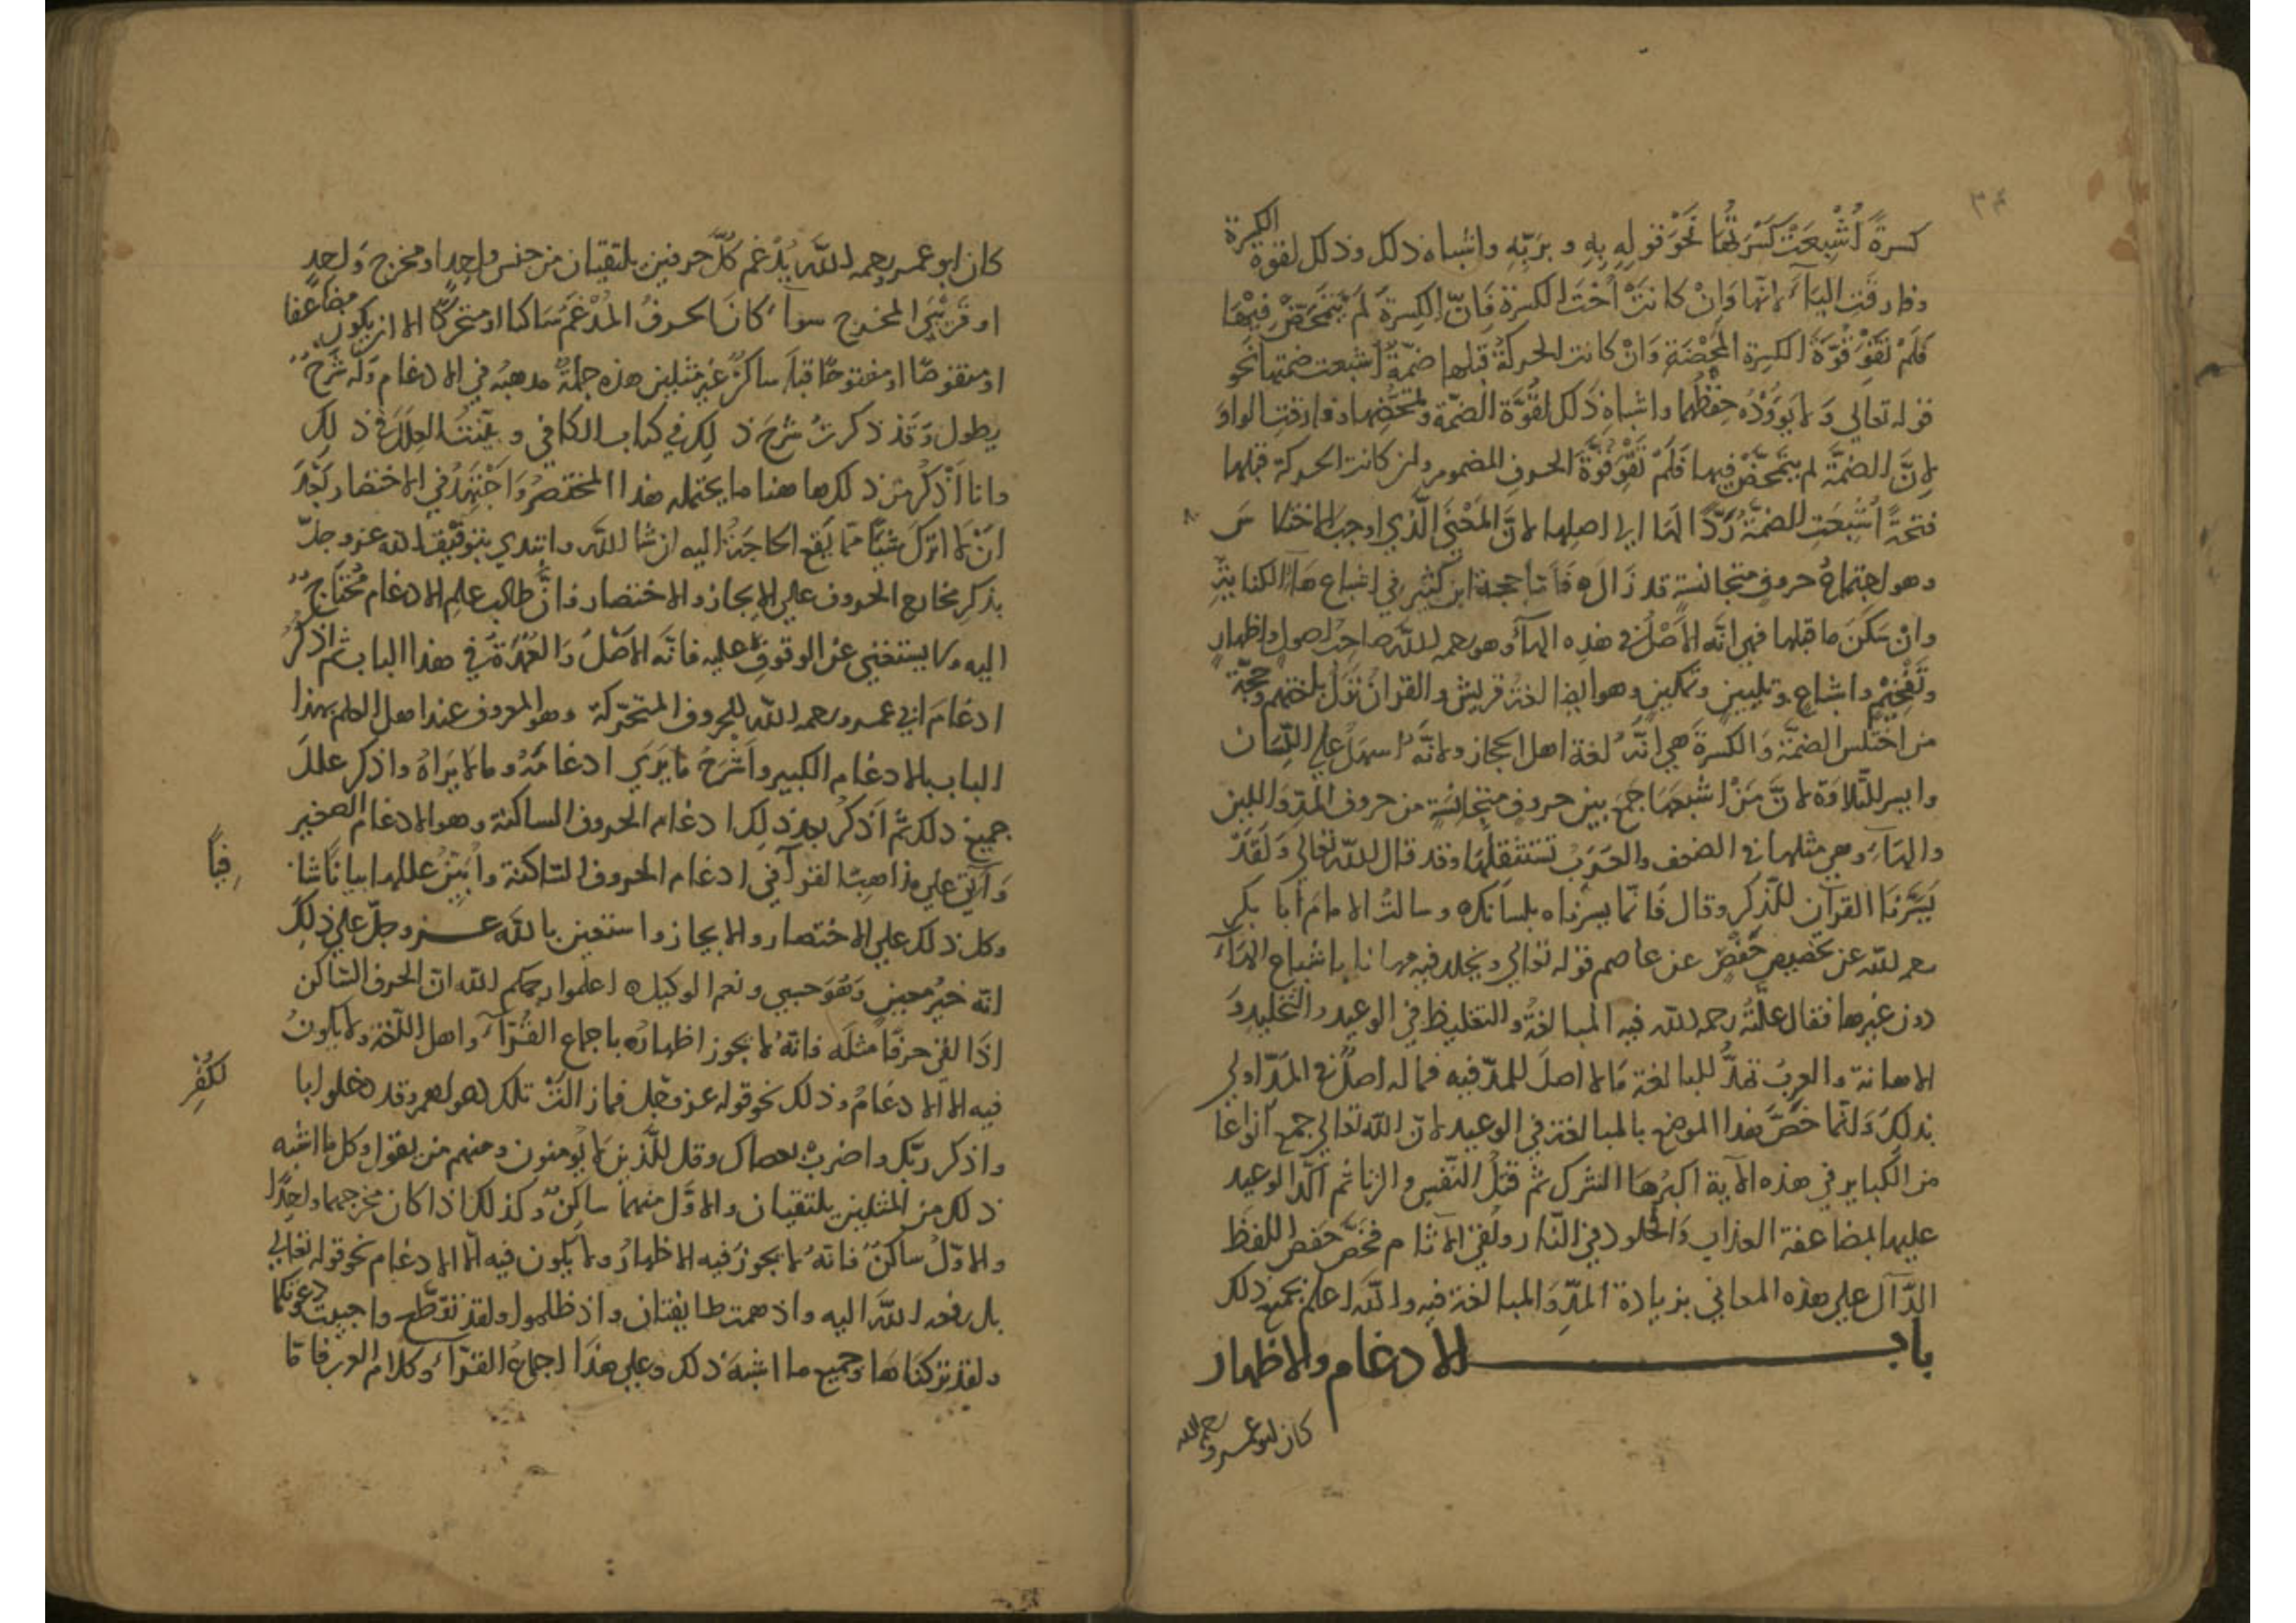 ٣٤
كسرةً أُشْبِعَتْ كَسْرَتُهَا نَحْوَ قولِهِ بِهِ و بِرَبِّهِ واشباه ذلك وذلك لقوة الكسرة
وفارقت اليَآءَ لانها وَانْ كانتْ اُخْتَ الكسرة فَاِنَّ الكسرةَ لَمْ يَتَمَحَّضْ فيهَا
فَلَمْ تَقْوَ قُوَّةَ الكسرة المَحْضَةِ وَانْ كانت الحركةُ قبلها ضمّةً اُشبعت ضمتها نحو
قوله تعالى وَلا يَوُدُهُ حِفْظُهُمَا واشباه ذَلك لقُوَّة الضمّة وتمحُّضِها وفارقت الواوَ
لِاَنَّ الضمَّةَ لم يتمحَّضْ فيها فَلَمْ تَقْوَ قُوَّةَ الحروف المضموم وان كانت الحركة قبلها
فتحةً اُشْبِعَتِ الضمّةُ رَدًّا لَهَا الى اصلها لانَّ المَعْنَى الَّذي اوجب الاختلاس
وهو اجتماعُ حروفٍ متجانسةٍ قد زَالَ ه فَاَمّا حجة ابن كثير في اشباع هَآءِ الكنايةِ
وانْ سَكَنَ ما قبلها فهي انَّه الاَصْلُ في هذه الهآءِ وهو رحمه اللَّه صاحبُ اصولٍ واظهارٍ
وتَفْخيمٍ واشباعٍ وتليينٍ وتمكينٍ وهو ايضا لغةُ قريش والقرانُ نزل بلغتهم وحجّة
من اختلس الضمّة وَالكسرةَ هي انَّهُ لغة اهل الحجاز ولانَّهُ اسهلُ على اللّسان
وايسر للتّلاوة لانَّ مَنْ اشبعهَا جمع بين حروفٍ متجانسةٍ من حروف المدّ وَاللين
والهَآءِ وهي مثلها في الضعف والعَرَبُ تستثقلُها وقد قال اللّه تعالى وَلَقَدْ
يَسَّرْنَا القرآن للذّكر وقال فَانّما يسرناه بلسانك ه وسالتُ الامامَ أبا بكر
رحمه اللّه عن تخصيص حَفْصٍ عن عاصم قوله تعالى ويخلد فيه مهانا باشباع الهآء
دون غيرها فقال علّتُهُ رحمه اللّه فيه المبالغةُ والتغليظ في الوعيد والتخليد وَ
الاهانة والعربُ تمدُّ للمبالغة مَا لا اصلَ للمدّ فيه فما له اصلٌ في المَدّ اولى
بذلك وَانّما خصَّ هذا الموضع بالمبالغة في الوعيد لانّ اللّه تعالى جمع انواعا
من الكباير في هذه الآية اكبرُها الشرك ثم قتلُ النّفس والزنا ثم أكّد الوعيد
عليها بمضاعفة العذاب وَالخلود في النّار ولُقيّ الآثام فخصَّ حَفص اللفظ
الدّآل على هذه المعاني بزيادة المدّ وَالمبالغة فيه واللّه اعلم بجميع ذلك
باب الادغام والاظهار
كان ابو عمرو رحمه الله
كان ابو عمرو رحمه اللَّه يُدْغم كلَّ حرفين يلتقيان من جنس واحدٍ او مخرج وَاحدٍ
او قَرِيْبَي المخرج سوآءً كانَ الحرفُ المُدْغَمُ ساكنا او متحركًا الا ان يكون مضاعفا
او منقوصًا او مفتوحًا قبله ساكنٌ غير مثلين هذه جملةُ مذهبه في الادغام وَله شرحٌ
يطول وَقَدْ ذكرتُ شرحَ ذلك في كتاب الكافي وبيّنتُ العللَ في ذلك
وانا أَذْكرُ من ذلك هاهنا ما يحتمله هذا المختصرُ وَاجتهدُ في الاختصار بَعْدَ
انْ لا اترك شيئًا ممّا يَقع الحاجَةُ اليه ان شا اللَّه وابتدي بتوفيق اللّه عز وجلّ
بذكرِ مخارج الحروف على الايجاز والاختصار فانَّ طالبَ علمِ الادغام مُحتاجٌ
اليه ولا يستغني عن الوقوف عليه فانَّه الاَصْلُ وَالعُمْدَةُ في هذا الباب ثم اذكرُ
ادغامَ ابي عمرو رحمه اللّه للحروف المتحرّكة وهو المعروف عند اهل العلم بهذا
الباب بالادغام الكبير واَشْرَحُ مَا يَرَي ادغامَهُ وما لا يَرَاهُ واذكر عللَ
جميع ذلك ثمّ اَذكرُ بعد ذلك ادغام الحروف الساكنة وهو الادغام الصغير
وَآتي على مذاهب القرآء في ادغام الحروف السّاكنة وابَيّنُ عللها بيانًا شا
فِيًا
وكل ذلك على الاختصار والايجاز واستعين باللّه عز وجلّ على ذلك
انّه خيرُ معين وَهُوَ حسبي ونعم الوكيل ه اعلموا رحمكم اللّه انّ الحرفَ السّاكن
اذَا لقى حرفًا مثلَه فانّهُ لا يجوز اظهارُه باجماع القُرّآءِ واهل اللّغة ولا يكونُ
فيه الا الادغامُ وذلك نحو قوله عز وجل فما زالتْ تلك دعواهم وقد دخلوا با
لكُفْرِ
واذكر ربّك واضربْ بعصاك وقل للّذين لا يومنون ومنهم من يقول وكل ما اشبه
ذلك من المثلين يلتقيان والاوّل منهما ساكنٌ وكذلك اذا كان مخرجهما واحدًا
والاوّلُ ساكنٌ فانّهُ لا يجوزُ فيه الاظهارُ ولا يكون فيه الّا الادغام نحو قوله تعالى
بل رفعه اللّه اليه واذ همت طايفتان واذ ظلموا ولقد تقطّع واجيبت دعوتكما
ولقد تركناها وجميع ما اشبهَ ذلك وعلى هذَا اجماعُ القرّآء وكلام العرب فامّا